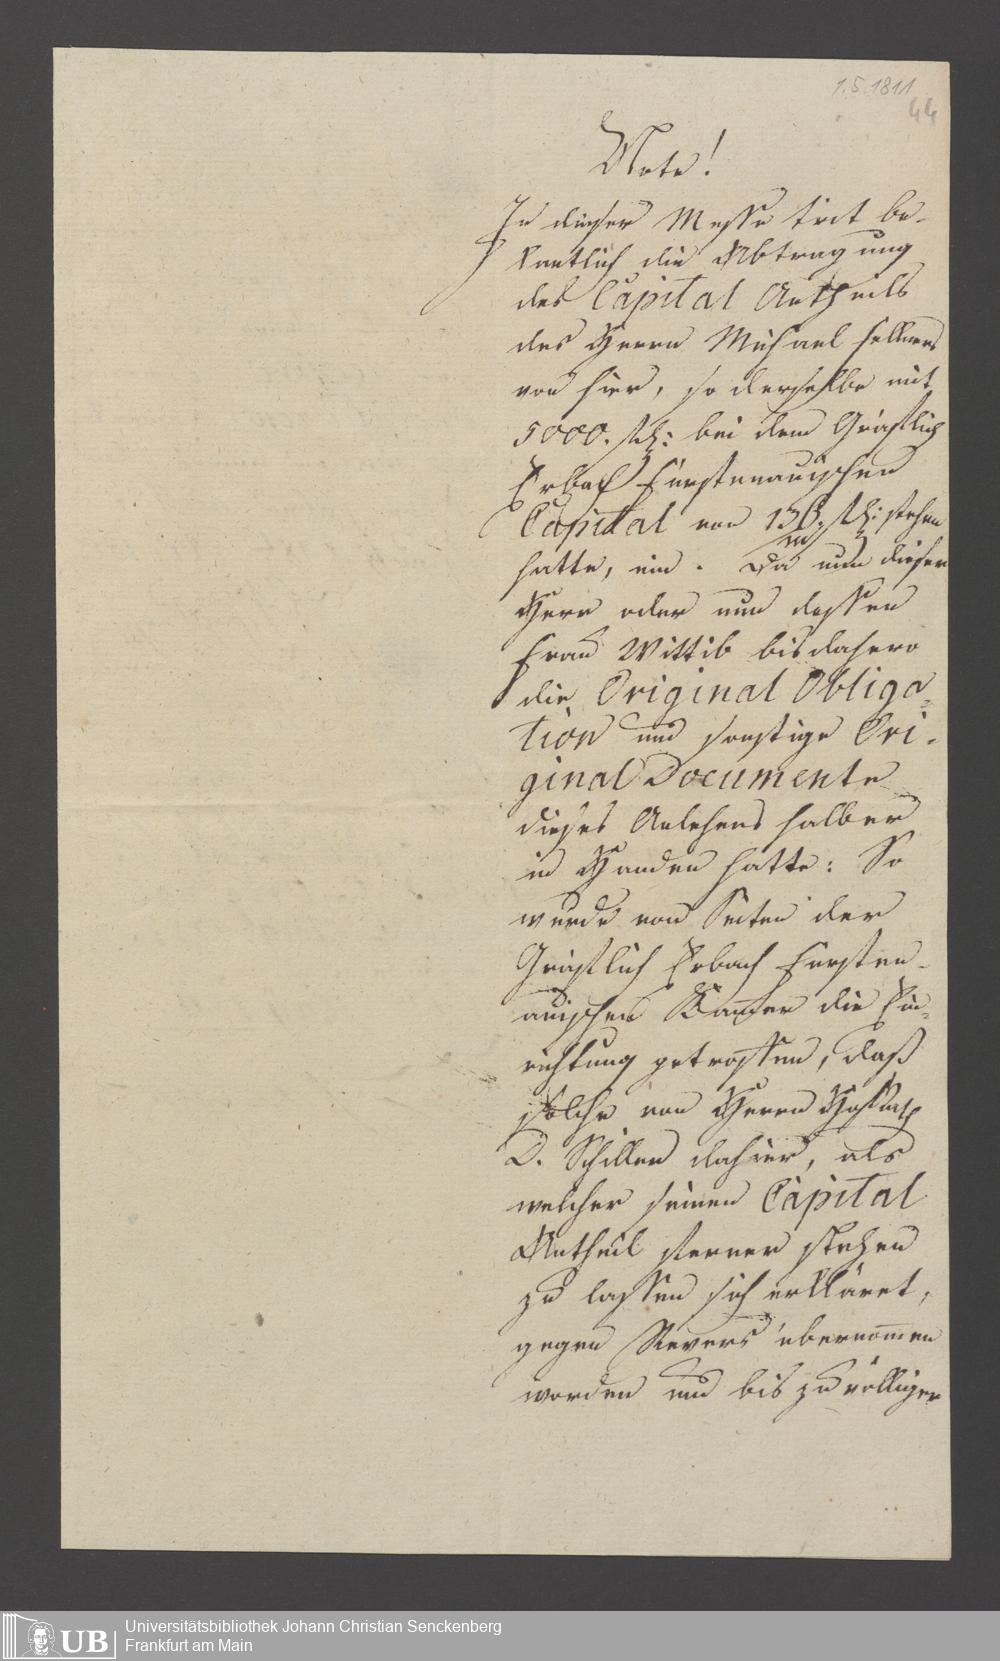 1.5.1811
44
Note!
In dieser Messe trit be-
kantlich die Abtragung
des Capital Antheils
des Herrn Michael Fellners
von hier, so derselbe mit
5000. fl: bei dem Gräflich
Erbach Fürstenauischen
Capital von fl: stehen
hatte, ein. Da nun dieser
Herr oder nun dessen
Frau Wittib bis dahero
die Original Obliga-
tion und sonstige Ori-
ginal Documente
dieses Anlehens halber
in Handen hatte: So
wurde von Seiten der
Gräflich Erbach Fürsten-
auischen Kammer die Ein-
richtung getroffen, daß
solche von Herrn Hofrath
D. Schillen dahier, als
welcher seinen Capital
Antheil ferner stehen
zu lassen sich erkläret,
gegen Revers übernommen
worden und bis zu völliger
Universitätsbibliothek Johann Christian Senckenberg
Frankfurt am Main
UB